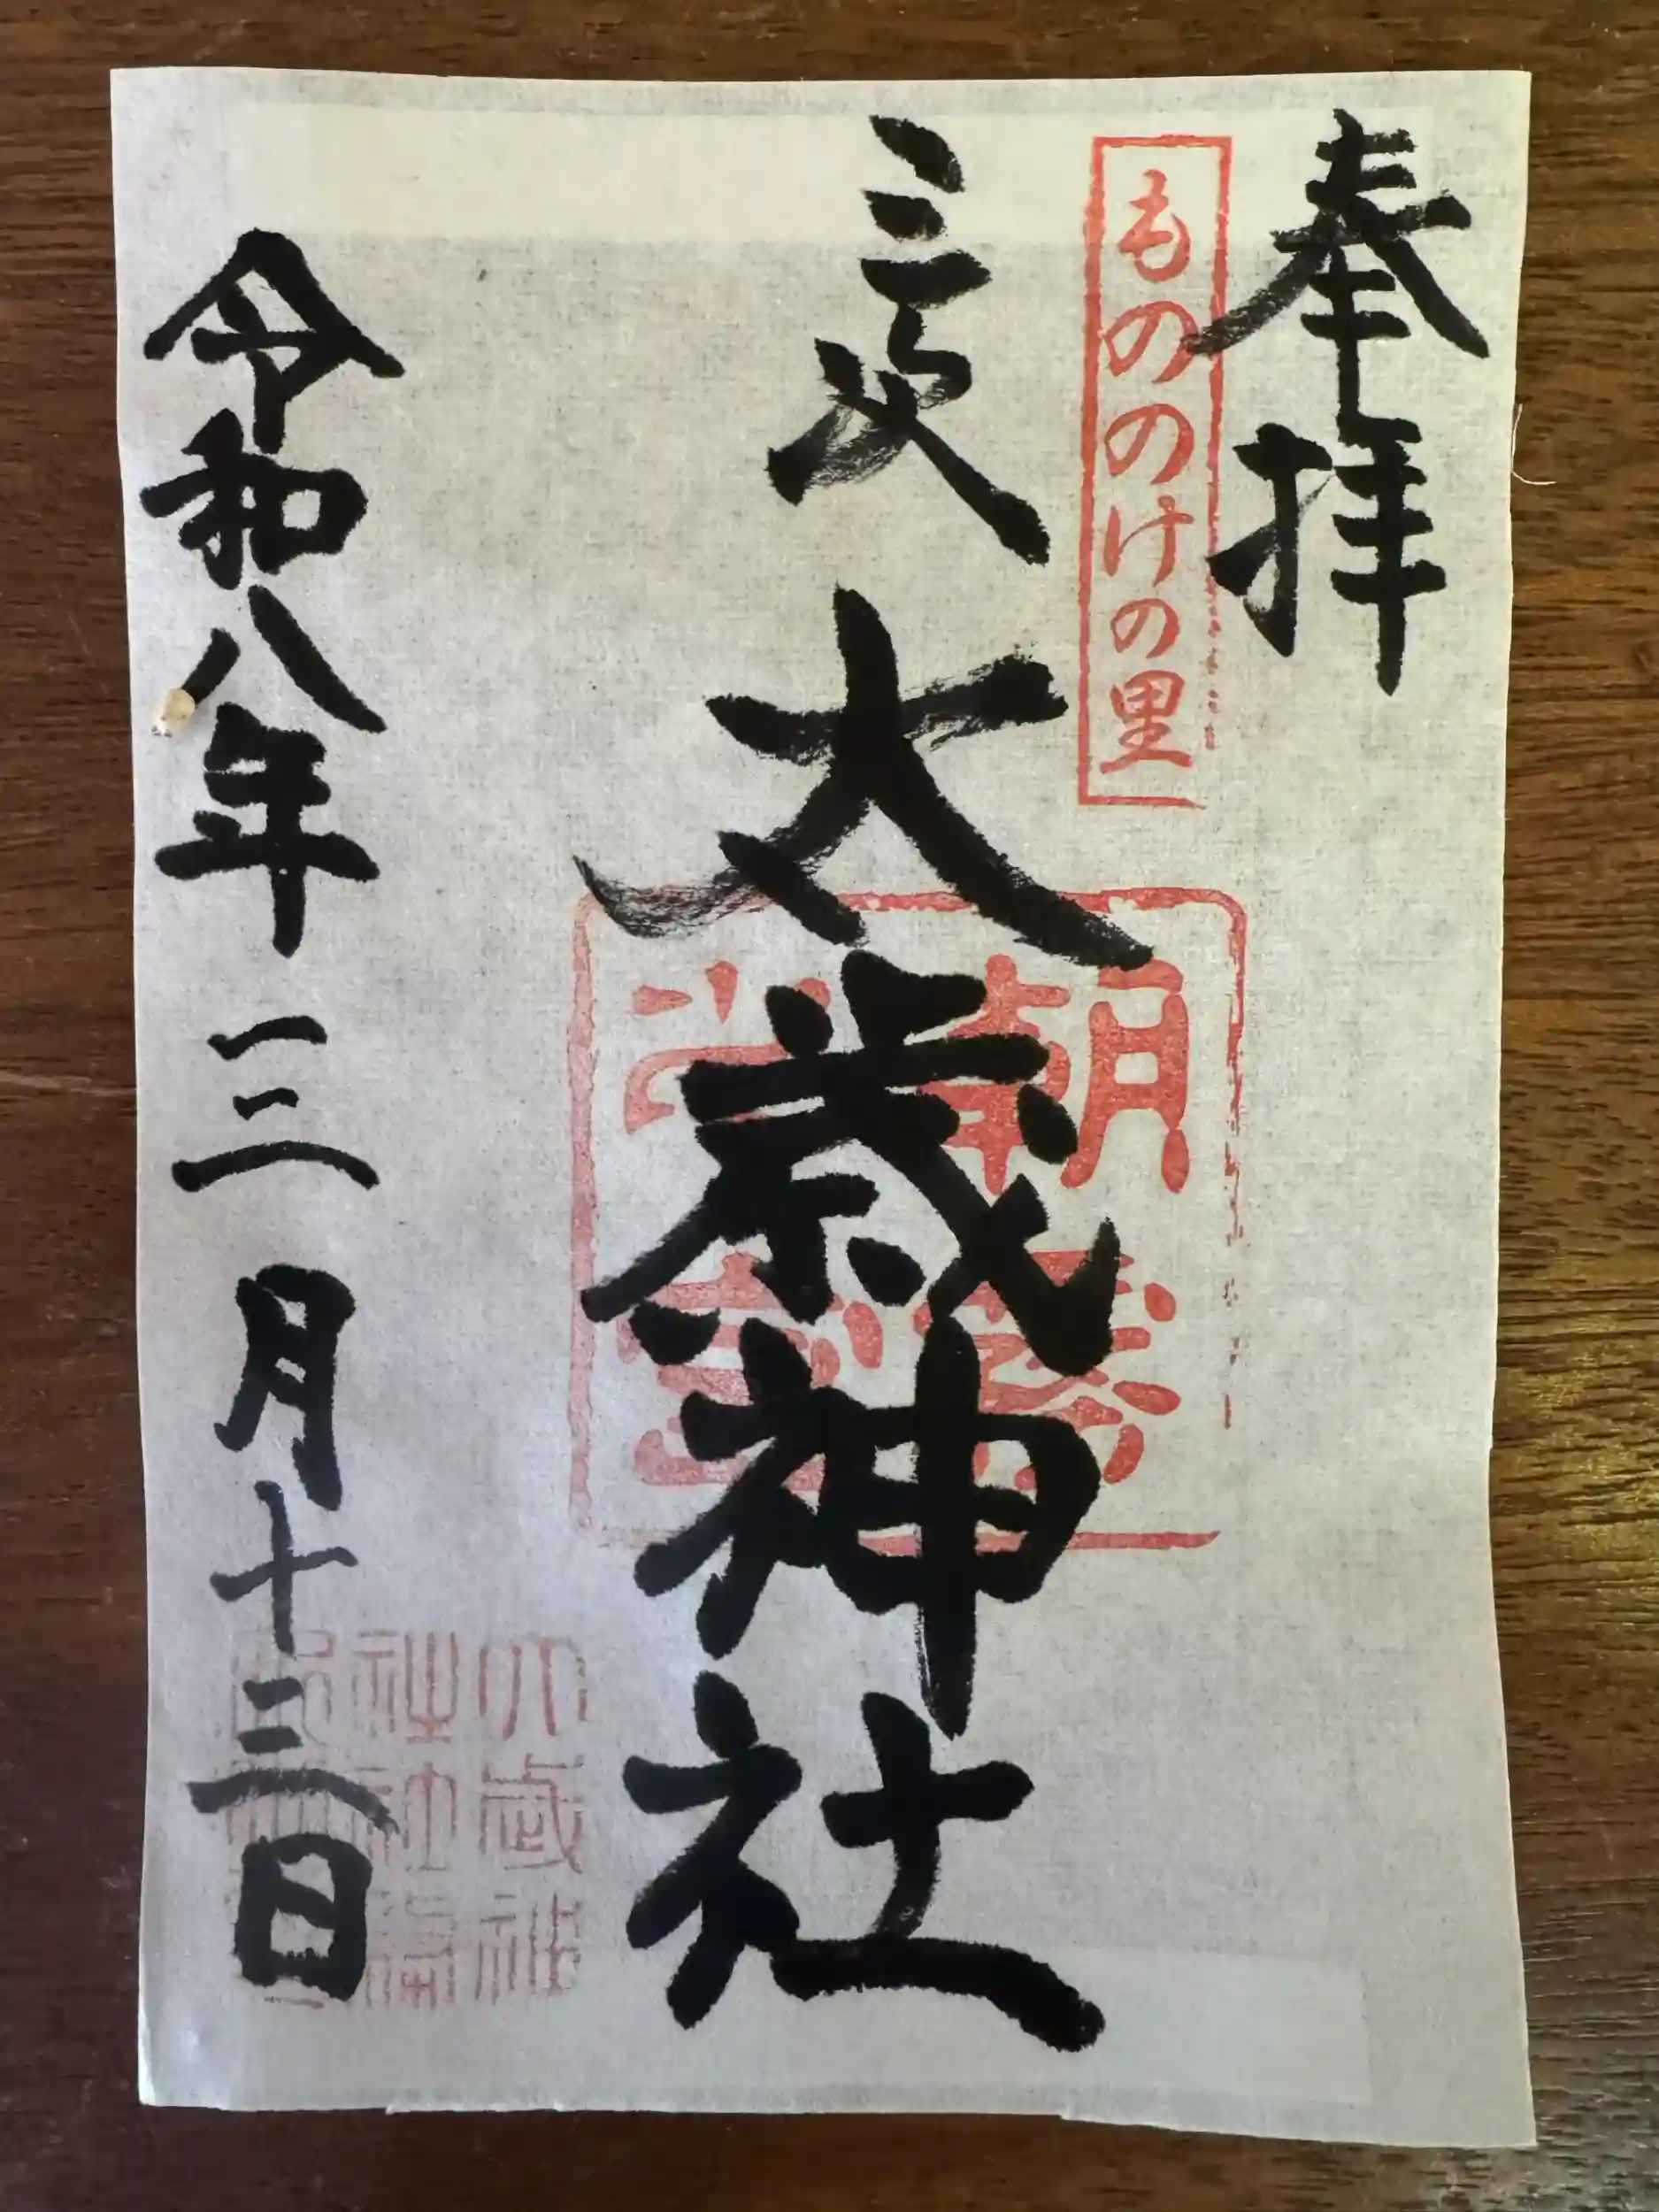 奉拝
もののけの里
三次
太歳神社
令和八年三月十三日
太歳神
社社務